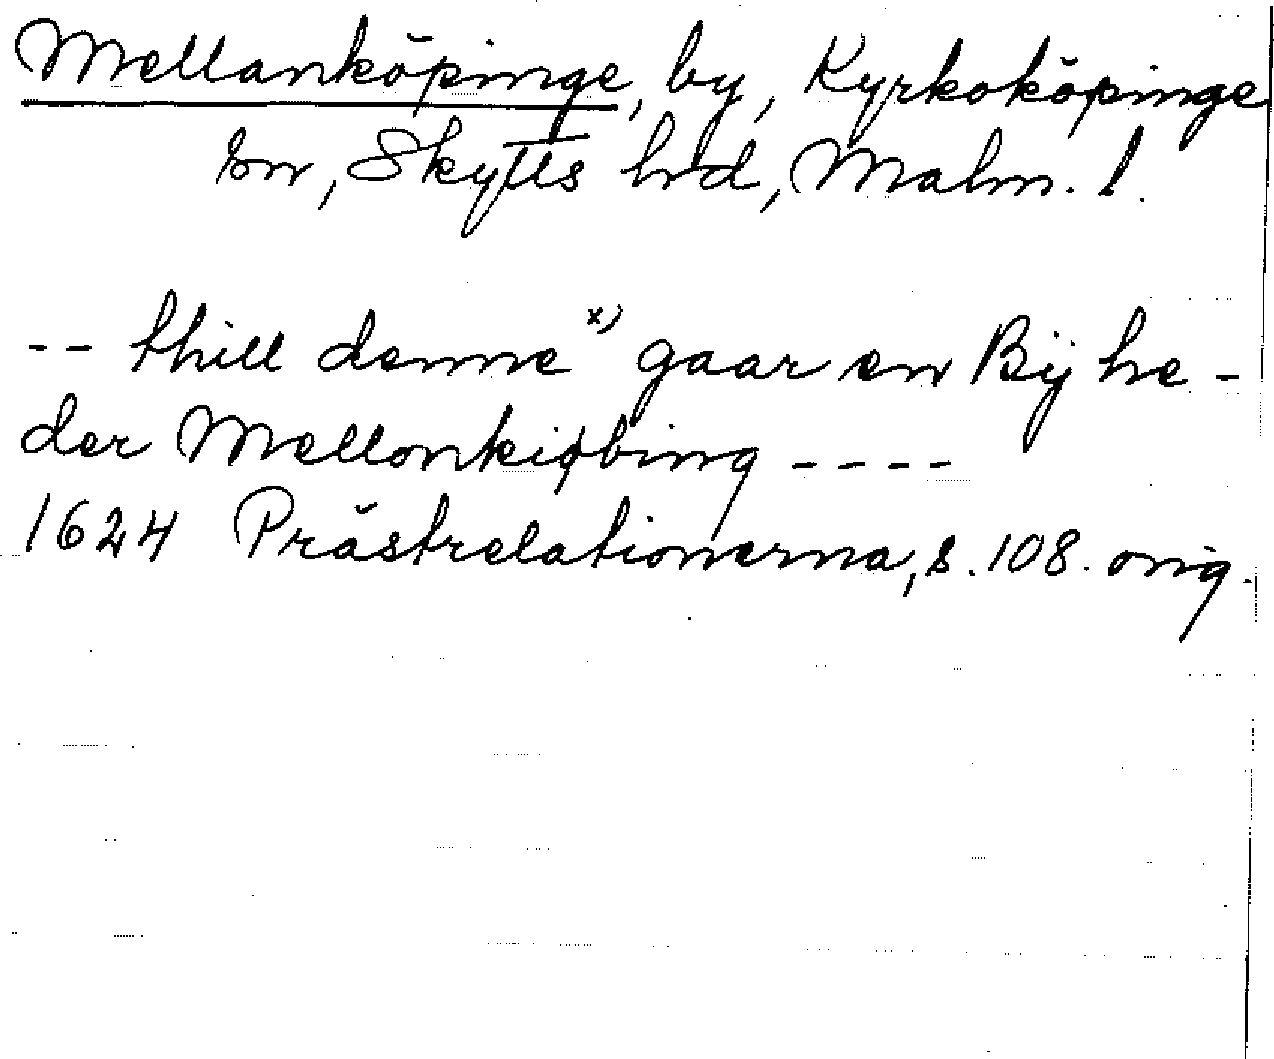 Mellanköpinge, by, Kyrkoköpinge
sn, Skytts hrd, Malm. l.
-- thill denne x) gaar en Bÿ he-
der Mellonkiøbing ----
1624 Prästrelationerna, s. 108. orig.